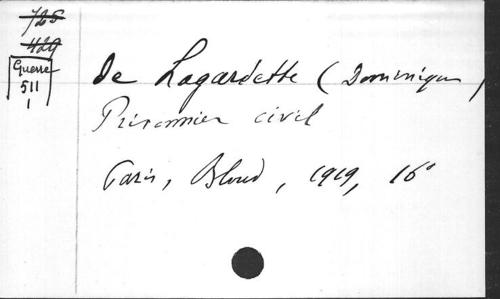 728
429
Guerre
511
1
de Lagardette (Dominique)
Prisonnier civil
Paris, Bloud, 1919, 16°